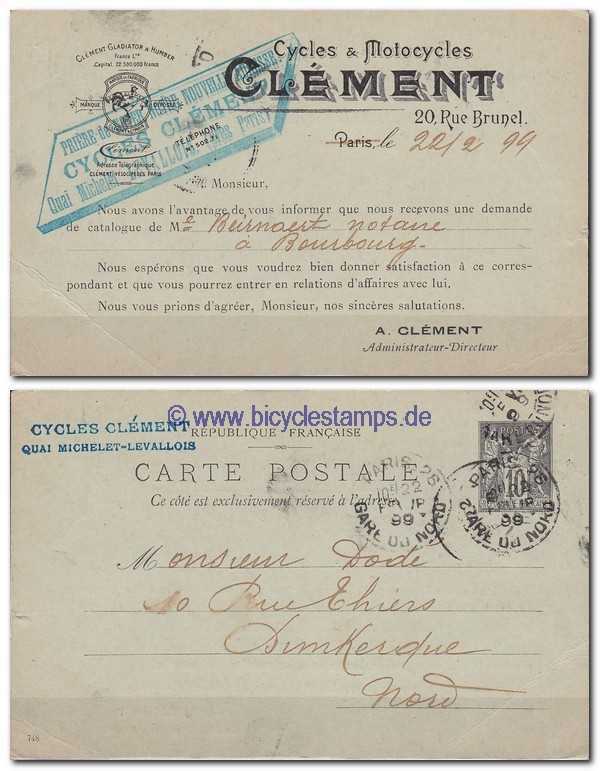 CLÉMENT GLADIATOR & HUMBER
France Ltd
Capital. 22 500.000 Francs
MARQUE DÉPOSÉE
Clément
Adresse Télégraphique
CLÉMENT-VÉLOCIPÈDES PARIS
TÉLÉPHONE
Cycles & Motocycles
CLÉMENT
20, Rue Brunel.
Paris, le 22/2 99
PRIÈRE NOUVELLE ADRESSE
CYCLES CLÉMENT
Quai Michelet LEVALLOIS près Paris
M. Monsieur,
Nous avons l'avantage de vous informer que nous recevons une demande
de catalogue de Me Beirnaert notaire
à Bourbourg.
Nous espérons que vous voudrez bien donner satisfaction à ce corres-
pondant et que vous pourrez entrer en relations d'affaires avec lui.
Nous vous prions d'agréer, Monsieur, nos sincères salutations.
A. CLÉMENT
Administrateur-Directeur
© www.bicyclestamps.de
CYCLES CLÉMENT
QUAI MICHELET-LEVALLOIS
RÉPUBLIQUE FRANÇAISE
CARTE POSTALE
Ce côté est exclusivement réservé à l'adresse
POSTES
10
PARIS 26
22
99
GARE DU NORD
PARIS 26
99
GARE DU NORD
Monsieur Dode
10 Rue Thiers
Dunkerque
Nord
748